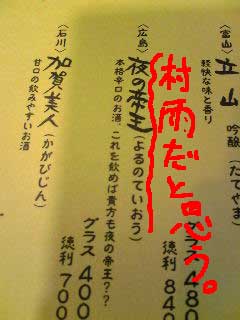 〈富山〉
立山 吟醸（たてやま）
軽快な味と香り
グラス 480
徳利 840
村雨だと思う。
〈広島〉
夜の帝王（よるのていおう）
本格辛口のお酒、これを飲めば貴方も夜の帝王？？
グラス 400
徳利 700
〈石川〉
加賀美人（かがびじん）
甘口の飲みやすいお酒